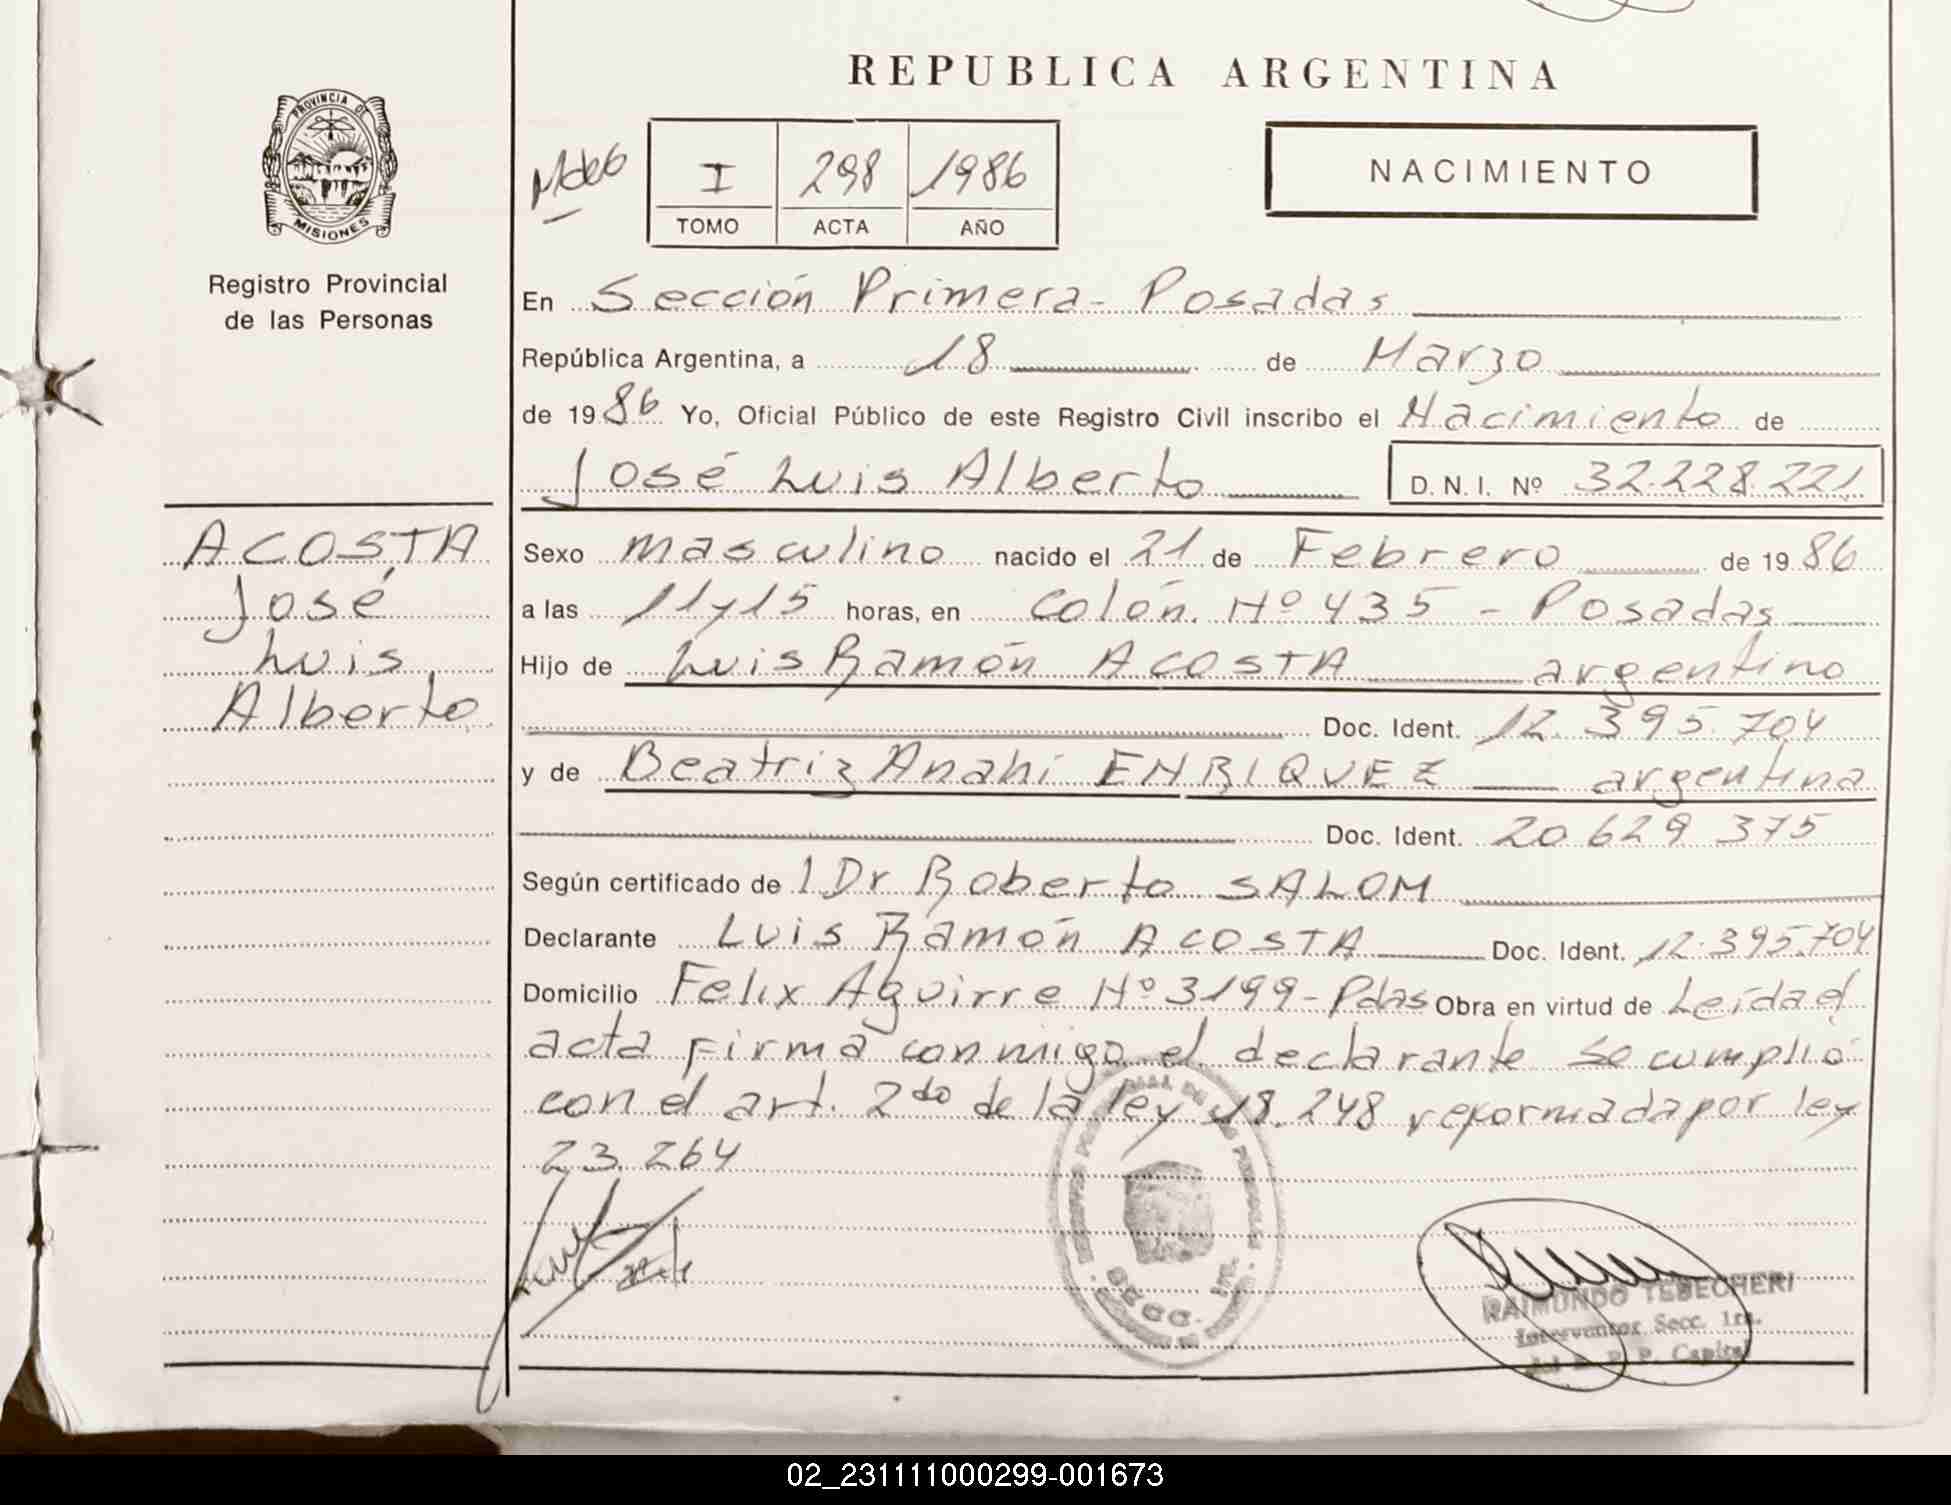 REPUBLICA ARGENTINA
PROVINCIA DE
MISIONES
Registro Provincial
de las Personas
I 298 1986
TOMO ACTA AÑO
NACIMIENTO
En Sección Primera - Posadas
República Argentina, a 18 de Marzo
de 1986 Yo, Oficial Público de este Registro Civil inscribo el Nacimiento de
José Luis Alberto D.N.I. Nº 32.228.221
ACOSTA
José
Luis
Alberto
Sexo masculino nacido el 21 de Febrero de 1986
a las 11y15 horas, en Colón. Nº 435 - Posadas
Hijo de Luis Ramón ACOSTA argentino
Doc. Ident. 12.395.704
y de Beatriz Anahi ENRIQUEZ argentina
Doc. Ident. 20 629 375
Según certificado de l Dr Roberto SALOM
Declarante Luis Ramón ACOSTA Doc. Ident. 12.395.704
Domicilio Felix Aguirre Nº 3199 - Pdas Obra en virtud de Leída el
acta firma conmigo el declarante se cumplió
con el art. 2do de la ley 18.248 reformada por ley
23.264
SECC. 1ra.
RAIMUNDO TEBECHERI
Interventor Secc. 1ra.
del R. P. P. Capital
02_231111000299-001673